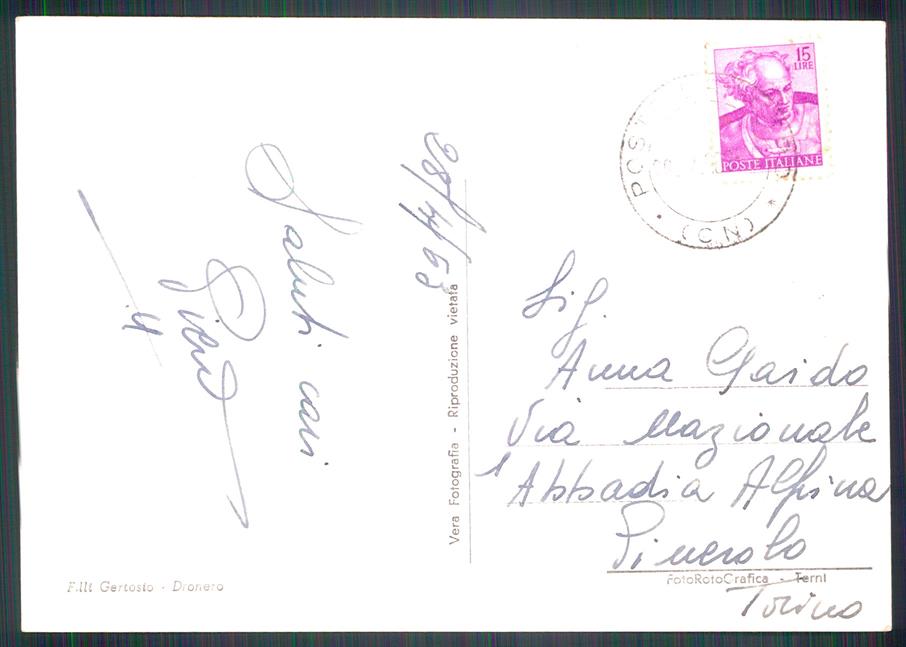 28/7/63
Saluti cari
15
LIRE
POSTE ITALIANE
POST
(CN)
Sig.
Anna Gaido
Via Nazionale
Abbadia Alpina
Pinerolo
Torino
Vera Fotografia - Riproduzione vietata
F.lli Gertosio - Dronero
FotoRotoGrafica - Terni